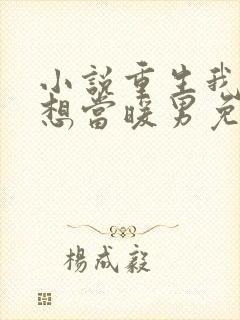 小說重生我
想當暖男免
楊成毅